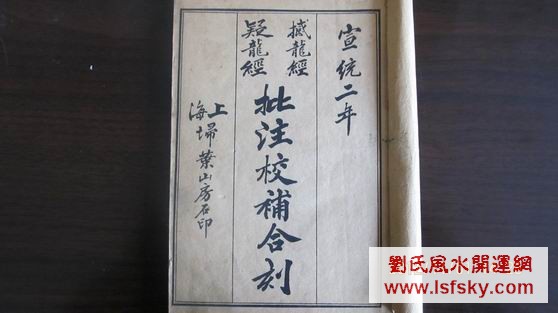 宣統二年
撼龍經
疑龍經
批注校補合刻
上海埽葉山房石印
劉氏風水開運網
www.lsfsky.com